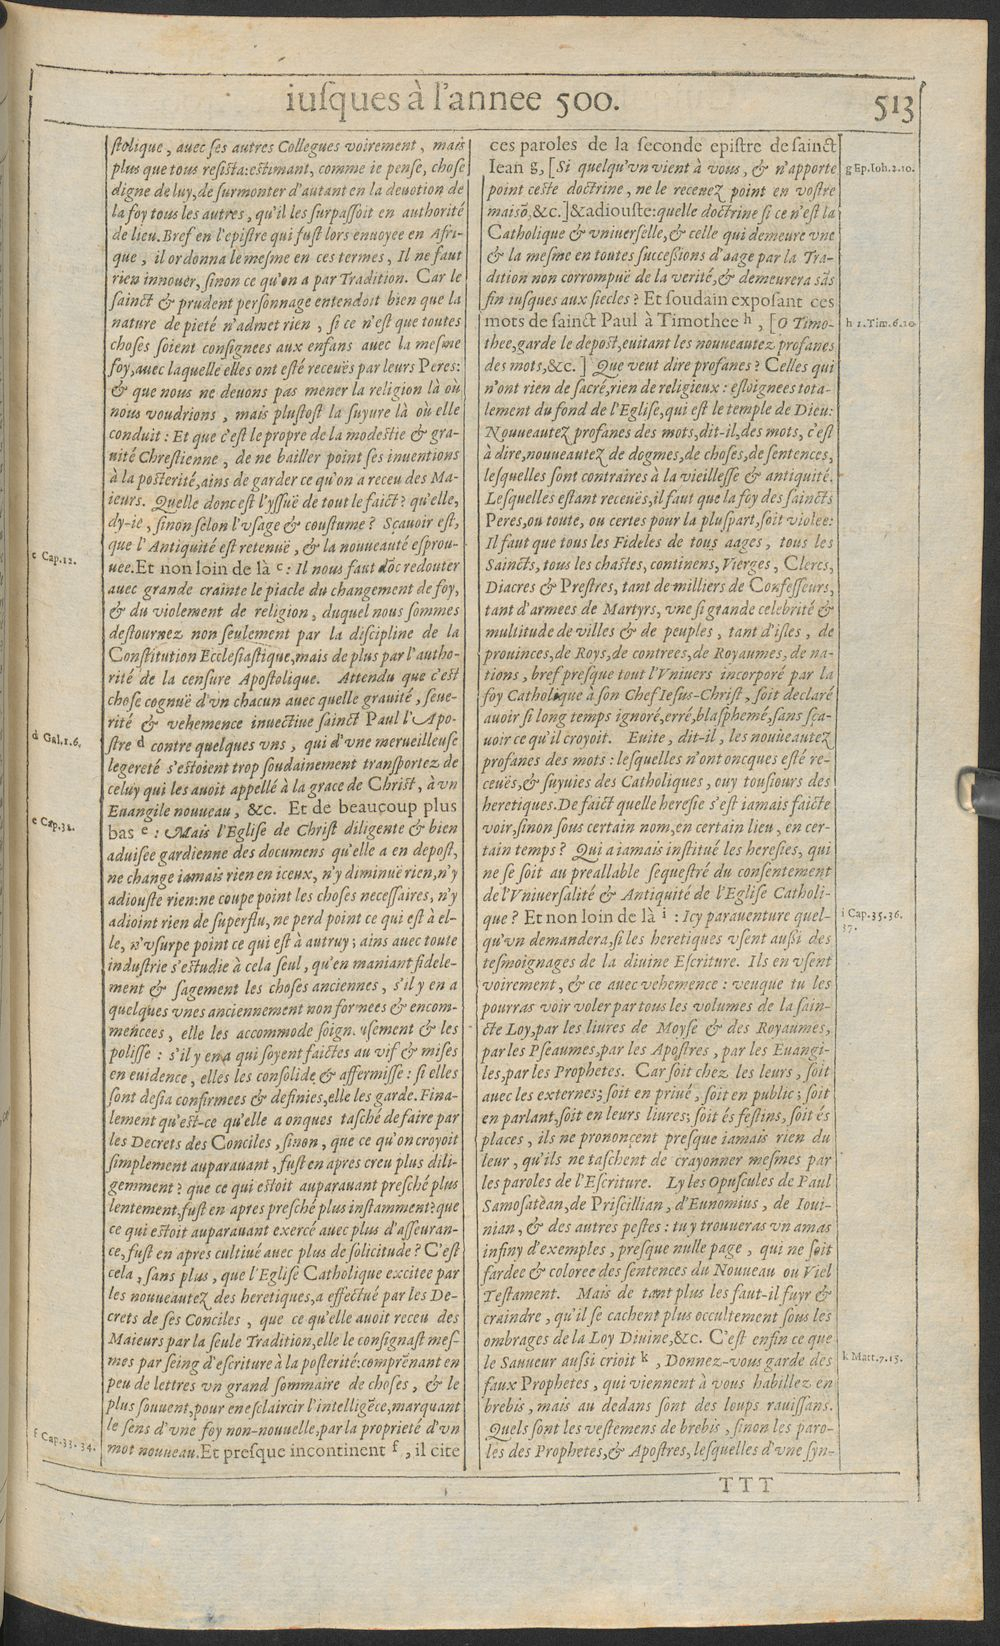 iuſques à l'annee 500.
513
ſtolique, auec ſes autres Collegues voirement, mais
plus que tous reſiſta: eſtimant, comme ie penſe, choſe
digne de luy, de ſurmonter d'autant en la deuotion de
la foy tous les autres, qu'il les ſurpaſſoit en authorité
de lieu. Bref en l'epiſtre qui fuſt lors enuoyee en Afri-
que, il ordonna le meſme en ces termes, Il ne faut
rien innouer, ſinon ce qu'on a par Tradition. Car le
ſainct & prudent perſonnage entendoit bien que la
nature de pieté n'admet rien, ſi ce n'eſt que toutes
choſes ſoient conſignees aux enfans auec la meſme
foy, auec laquelle elles ont eſté receuës par leurs Peres:
& que nous ne deuons pas mener la religion là où
nous voudrions, mais pluſtoſt la ſuyure là où elle
conduit: Et que c'eſt le propre de la modeſtie & gra-
uité Chreſtienne, de ne bailler point ſes inuentions
à la poſterité, ains de garder ce qu'on a receu des Ma-
ieurs. Quelle donc eſt l'yſſuë de tout le faict? qu'elle,
dy-ie, ſinon ſelon l'vſage & couſtume? Scauoir eſt,
que l'Antiquité eſt retenuë, & la nouueauté eſprou-
uee. Et non loin de là c: Il nous faut dõc redouter
auec grande crainte le piacle du changement de foy,
& du violement de religion, duquel nous ſommes
deſtournez non ſeulement par la diſcipline de la
Conſtitution Eccleſiaſtique, mais de plus par l'autho-
rité de la cenſure Apoſtolique. Attendu que c'eſt
choſe cognuë d'vn chacun auec quelle grauité, ſeue-
rité & vehemence inuectiue ſainct Paul l'Apo-
ſtre d contre quelques vns, qui d'vne merueilleuſe
legereté s'eſtoient trop ſoudainement tranſportez de
celuy qui les auoit appellé à la grace de Chriſt, à vn
Euangile nouueau, &c. Et de beaucoup plus
bas e: Mais l'Egliſe de Chriſt diligente & bien
aduiſee gardienne des documens qu'elle a en depoſt,
ne change iamais rien en iceux, n'y diminuë rien, n'y
adiouſte rien: ne coupe point les choſes neceſſaires, n'y
adioint rien de ſuperflu, ne perd point ce qui eſt à el-
le, n'vſurpe point ce qui eſt à autruy: ains auec toute
induſtrie s'eſtudie à cela ſeul, qu'en maniant fidele-
ment & ſagement les choſes anciennes, s'il y en a
quelques vnes anciennement non formees & encom-
mencees, elle les accommode ſoigneuſement & les
poliſſe: s'il y en a qui ſoyent faictes au vif & miſes
en euidence, elles les conſolide & affermiſſe: ſi elles
ſont deſia confirmees & definies, elle les garde. Fina-
lement qu'eſt-ce qu'elle a onques taſché de faire par
les Decrets des Conciles, ſinon, que ce qu'on croyoit
ſimplement auparauant, fuſt en apres creu plus dili-
gemment? que ce qui eſtoit auparauant preſché plus
lentement, fuſt en apres preſché plus inſtamment? que
ce qui eſtoit auparauant exercé auec plus d'aſſeuran-
ce, fuſt en apres cultiué auec plus de ſolicitude? C'eſt
cela, ſans plus, que l'Egliſe Catholique excitee par
les nouueautez des heretiques, a effectué par les De-
crets de ſes Conciles, que ce qu'elle auoit receu des
Maieurs par la ſeule Tradition, elle le conſignaſt meſ-
mes par ſeing d'eſcriture à la poſterité: comprẽnant en
peu de lettres vn grand ſommaire de choſes, & le
plus ſouuent, pour en eſclaircir l'intelligẽce, marquant
le ſens d'vne foy non-nouuelle, par la proprieté d'vn
mot nouueau. Et preſque incontinent f, il cite
c Cap.12.
d Gal.1.6.
e Cap.32.
f Cap.33. 34.
ces paroles de la ſeconde epiſtre de ſainct
Iean g, [Si quelqu'vn vient à vous, & n'apporte
point ceſte doctrine, ne le receuez point en voſtre
maisõ, &c.] & adiouſte: quelle doctrine ſi ce n'eſt la
Catholique & vniuerſelle, & celle qui demeure vne
& la meſme en toutes ſucceſſions d'aage par la Tra-
dition non corrompuë de la verité, & demeurera sãs
fin iuſques aux ſiecles? Et ſoudain expoſant ces
mots de ſainct Paul à Timothee h, [O Timo-
thee, garde le depoſt, euitant les nouueautez profanes
des mots, &c.] Que veut dire profanes? Celles qui
n'ont rien de ſacré, rien de religieux: eſloignees tota-
lement du fond de l'Egliſe, qui eſt le temple de Dieu:
Nouueautez profanes des mots, dit-il, des mots, c'eſt
à dire, nouueautez de dogmes, de choſes, de ſentences,
leſquelles ſont contraires à la vieilleſſe & antiquité.
Leſquelles eſtant receuës, il faut que la foy des ſaincts
Peres, ou toute, ou certes pour la pluſpart, ſoit violee:
Il faut que tous les Fideles de tous aages, tous les
Saincts, tous les chaſtes, continens, Vierges, Clercs,
Diacres & Preſtres, tant de milliers de Confeſſeurs,
tant d'armees de Martyrs, vne ſi grande celebrité &
multitude de villes & de peuples, tant d'iſles, de
prouinces, de Roys, de contrees, de Royaumes, de na-
tions, bref preſque tout l'Vniuers incorporé par la
foy Catholique à ſon Chef Ieſus-Chriſt, ſoit declaré
auoir ſi long temps ignoré, erré, blaſphemé, ſans ſça-
uoir ce qu'il croyoit. Euite, dit-il, les nouueautez
profanes des mots: leſquelles n'ont oncques eſté re-
ceuës, & ſuyuies des Catholiques, ouy touſiours des
heretiques. De faict quelle hereſie s'eſt iamais faicte
voir, ſinon ſous certain nom, en certain lieu, en cer-
tain temps? Qui a iamais inſtitué les hereſies, qui
ne ſe ſoit au preallable ſequeſtré du conſentement
de l'Vniuerſalité & Antiquité de l'Egliſe Catholi-
que? Et non loin de là i: Icy parauenture quel-
qu'vn demandera, ſi les heretiques vſent auſſi des
teſmoignages de la diuine Eſcriture. Ils en vſent
voirement, & ce auec vehemence: veuque tu les
pourras voir voler par tous les volumes de la ſain-
cte Loy, par les liures de Moyſe & des Royaumes,
par les Pſeaumes, par les Apoſtres, par les Euangi-
les, par les Prophetes. Car ſoit chez les leurs, ſoit
auec les externes; ſoit en priué, ſoit en public; ſoit
en parlant, ſoit en leurs liures; ſoit és feſtins, ſoit és
places, ils ne prononcent preſque iamais rien du
leur, qu'ils ne taſchent de crayonner meſmes par
les paroles de l'Eſcriture. Ly les Opuſcules de Paul
Samoſatèan, de Priſcillian, d'Eunomius, de Ioui-
nian, & des autres peſtes: tu y trouueras vn amas
infiny d'exemples, preſque nulle page, qui ne ſoit
fardee & coloree des ſentences du Nouueau ou Viel
Teſtament. Mais de tant plus les faut-il fuyr &
craindre, qu'il ſe cachent plus occultement ſous les
ombrages de la Loy Diuine, &c. C'eſt enfin ce que
le Sauueur auſſi crioit k, Donnez-vous garde des
faux Prophetes, qui viennent à vous habillez en
brebis, mais au dedans ſont des loups rauiſſans.
Quels ſont les veſtemens de brebis, ſinon les paro-
les des Prophetes, & Apoſtres, leſquelles d'vne ſyn-
g Ep.Ioh.2.10.
h 1.Tim.6.20
i Cap.35.36.
37.
k Matt.7.15.
TTT